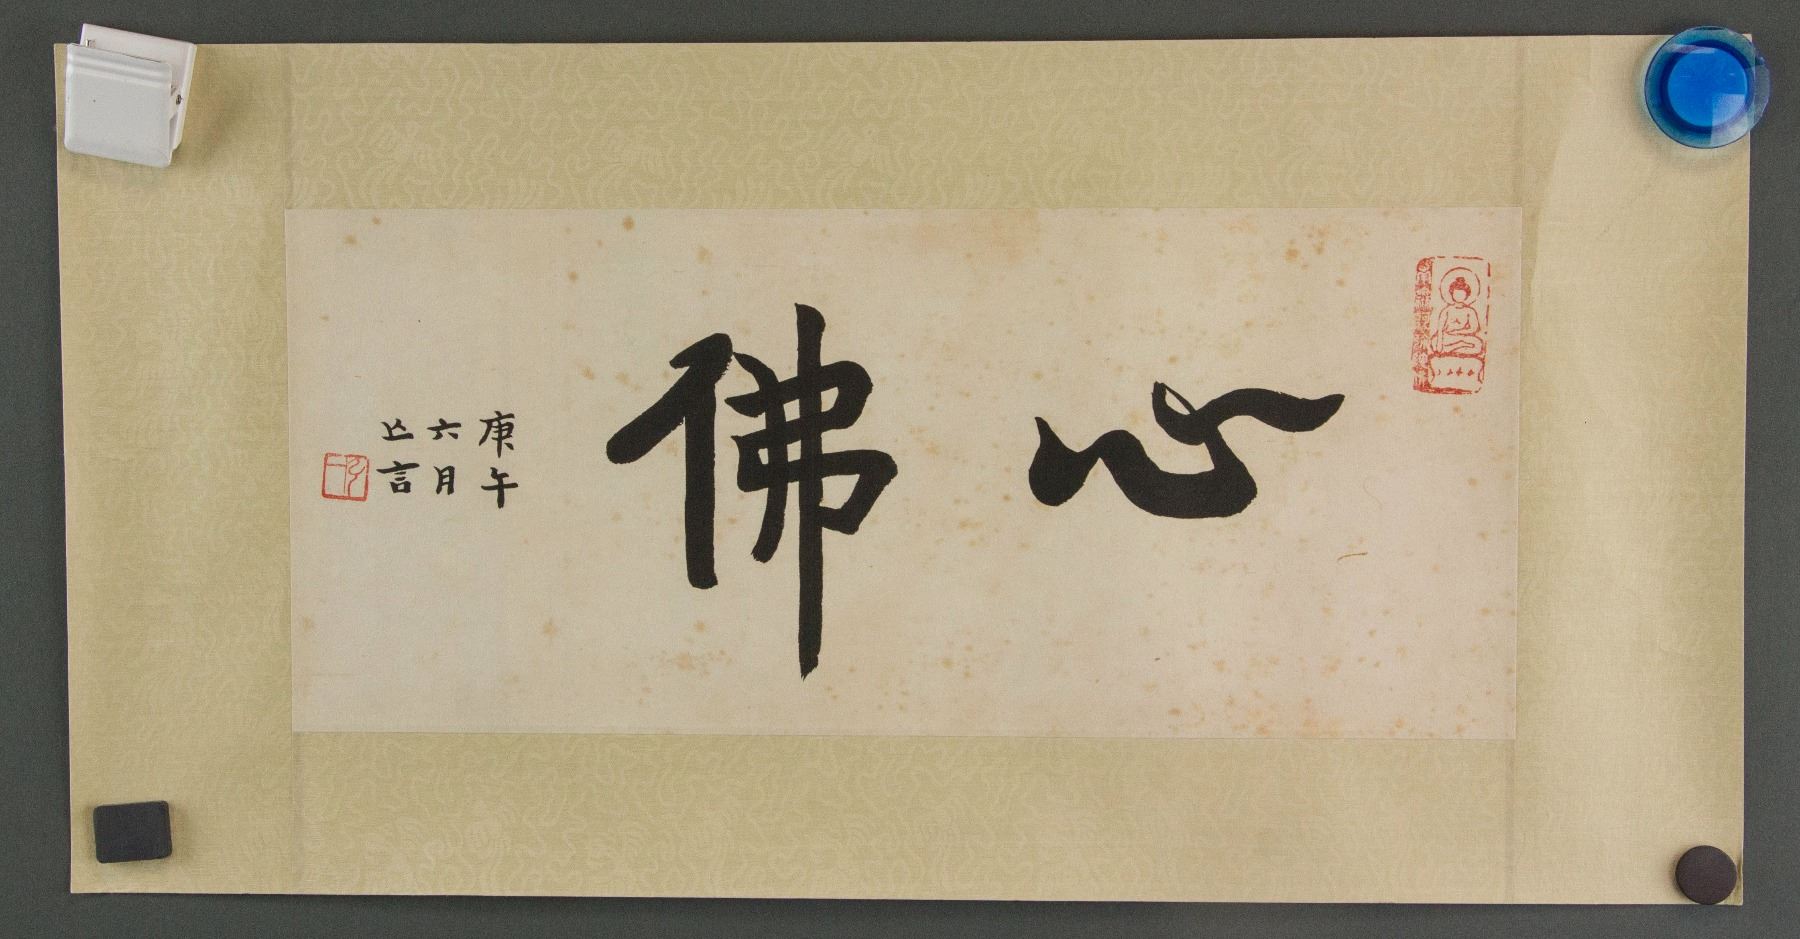 心佛
庚午
六月
亾言